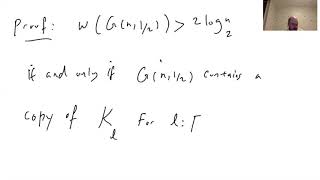 Proof: W(G(n,1/2)) > 2 log₂ n
if and only if G(n,1/2) contains a
copy of K_l for l: Γ